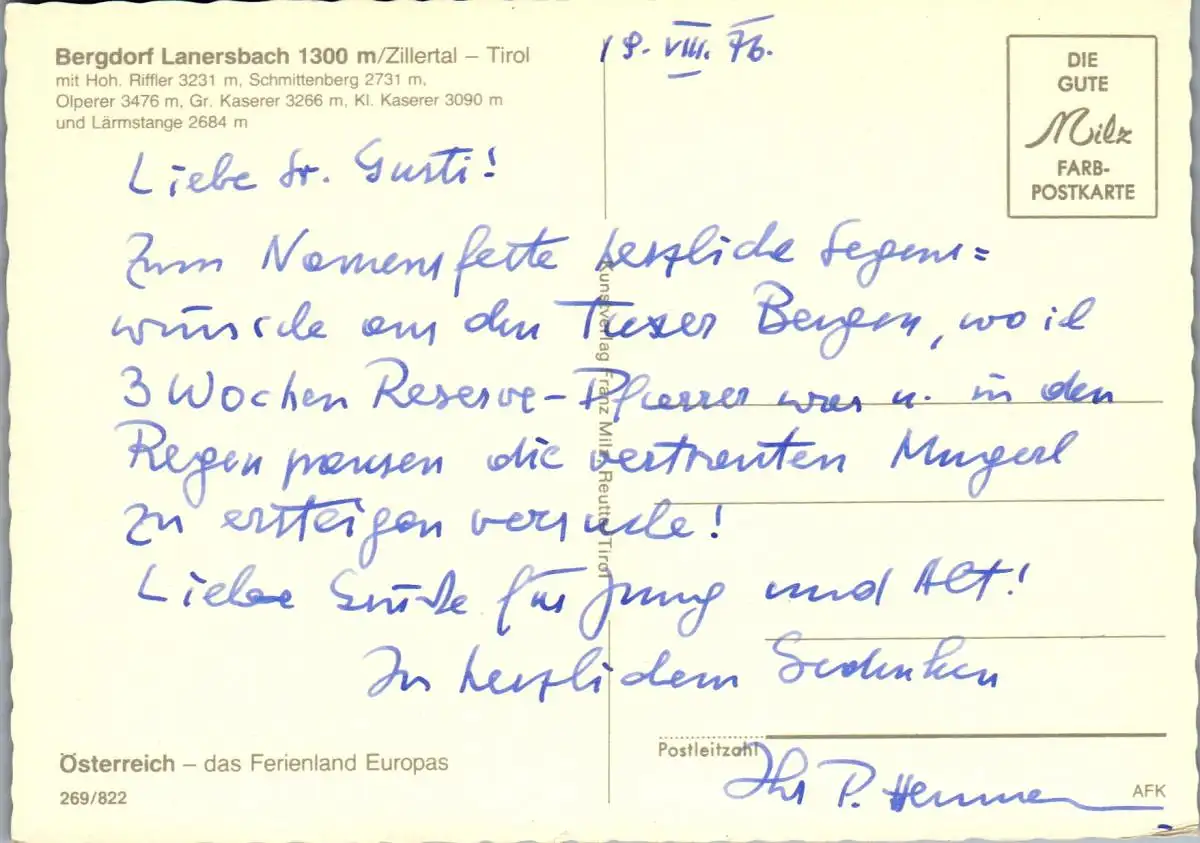 Bergdorf Lanersbach 1300 m/Zillertal – Tirol
mit Hoh. Riffler 3231 m, Schmittenberg 2731 m,
Olperer 3476 m, Gr. Kaserer 3266 m, Kl. Kaserer 3090 m
und Lärmstange 2684 m
19. VIII. 76.
DIE
GUTE
Milz
FARB-
POSTKARTE
Liebe Sr. Gusti!
Zum Namensfeste herzliche Segens=
wünsche aus den Tuxer Bergen, wo ich
3 Wochen Reserve-Pfarrer war u. in den
Regenpausen die vertrauten Mugerl
zu ersteigen versuche!
Liebe Grüße für Jung und Alt!
In herzlichem Gedenken
Ihr P.
Kunstverlag Franz Milz, Reutte/Tirol
Postleitzahl
Österreich – das Ferienland Europas
269/822
AFK